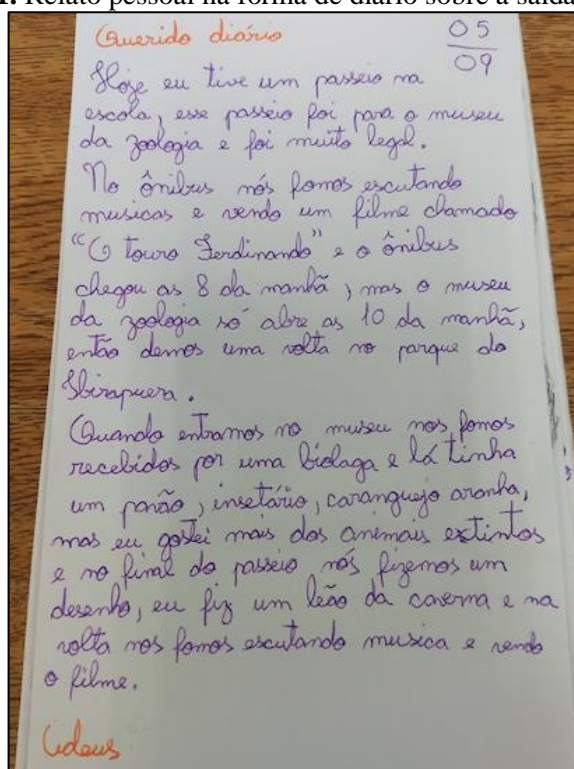 1. Relato pessoal na forma de diário sobre a saída
Querido diário
05
09
Hoje eu tive um passeio na
escola, esse passeio foi para o museu
da zoologia e foi muito legal.
No ônibus nós fomos escutando
musicas e vendo um filme chamado
"O touro Ferdinando" e o ônibus
chegou as 8 da manhã, mas o museu
da zoologia só abre as 10 da manhã,
então demos uma volta no parque do
Ibirapuera.
Quando entramos no museu nos fomos
recebidos por uma biologa e lá tinha
um pavão, insetário, caranguejo aranha,
mas eu gostei mais dos animais extintos
e no final do passeio nós fizemos um
desenho, eu fiz um leão da caverna e na
volta nos fomos escutando musica e vendo
o filme.
Adeus